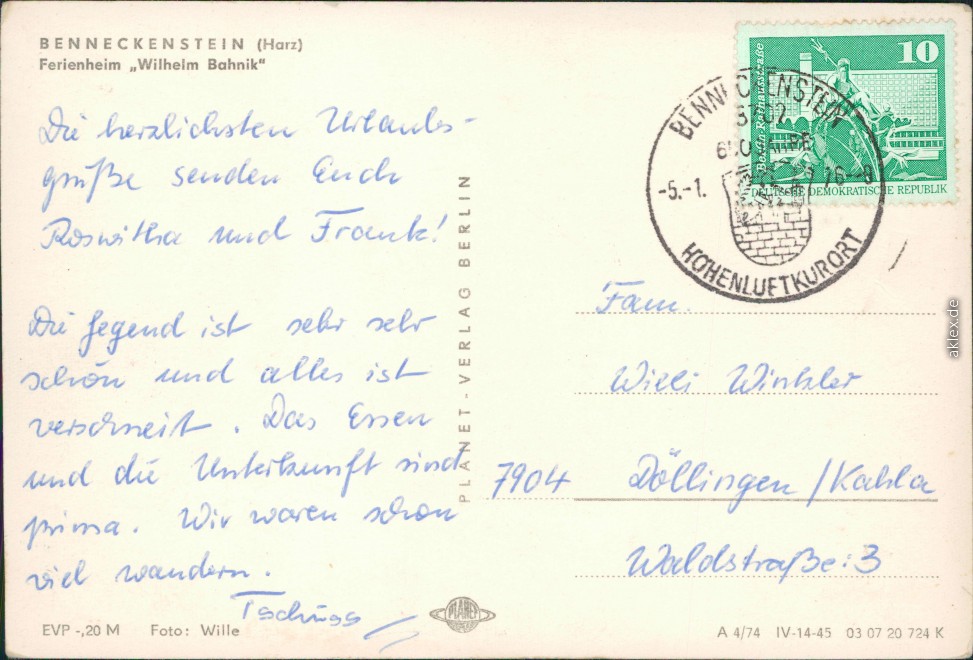 BENNECKENSTEIN (Harz)
Ferienheim „Wilhelm Bahnik"
Die herzlichsten Urlaubs-
grüße senden Euch
Roswitha und Frank!
Die Gegend ist sehr sehr
schön und alles ist
verschneit. Das Essen
und die Unterkunft sind
prima. Wir waren schon
viel wandern.
Tschüss
EVP -,20 M Foto: Wille
PLANET-VERLAG BERLIN
PLANET
10
Berlin-Rathausstraße
DEUTSCHE DEMOKRATISCHE REPUBLIK
BENNECKENSTEIN
-5.-1. 16-8
HÖHENLUFTKURORT
Fam.
Willi Winkler
7904 Döllingen/Kahla
Waldstraße:3
A 4/74 IV-14-45 03 07 20 724 K
aklex.de